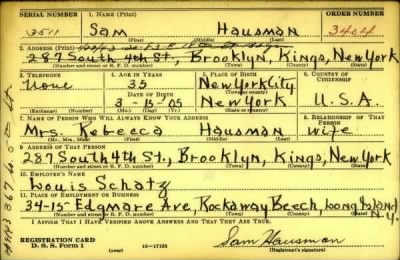 SERIAL NUMBER 1. NAME (Print) ORDER NUMBER
3511 Sam Hausman 3404
(First) (Middle) (Last)
2. ADDRESS (Print)
287 South 4th St., Brooklyn, Kings, New York
(Number and street or R. F. D. number) (Town) (County) (State)
3. TELEPHONE 4. AGE IN YEARS 5. PLACE OF BIRTH 6. COUNTRY OF CITIZENSHIP
None 35 New York City
DATE OF BIRTH (Town or county)
3-15-05 New York U.S.A.
(Exchange) (Number) (Mo.) (Day) (Yr.) (State or country)
7. NAME OF PERSON WHO WILL ALWAYS KNOW YOUR ADDRESS 8. RELATIONSHIP OF THAT PERSON
Mrs. Rebecca Hausman wife
(Mr., Mrs., Miss) (First) (Middle) (Last)
9. ADDRESS OF THAT PERSON
287 South 4th St., Brooklyn, Kings, New York
(Number and street or R. F. D. number) (Town) (County) (State)
10. EMPLOYER'S NAME
Louis Schatz
11. PLACE OF EMPLOYMENT OR BUSINESS
34-15 Edgmare Ave, Rockaway Beech, Long Island N.Y.
(Number and street or R. F. D. number) (Town) (County) (State)
I AFFIRM THAT I HAVE VERIFIED ABOVE ANSWERS AND THAT THEY ARE TRUE.
REGISTRATION CARD
D. S. S. Form 1 (over) 16-17105 Sam Hausman
(Registrant's signature)